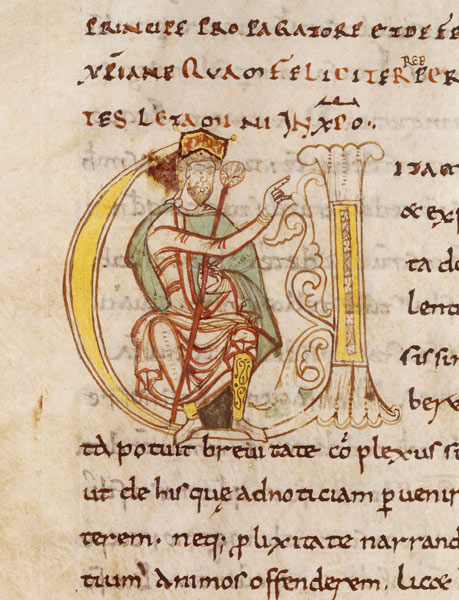 PRINCIPE PROPAGATORE ET DEFE
XPIANE QUAM FELICITER REP PER
TES LETAMINI IN XPO·
VITAM
& EX P
ta do
lenti
sissim
bere
ta potuit brevitate cō plexus s
ut de his quę ad noticiam p̄ venir
terem· neq; p̄ lixitate narrand
tium animos offenderem· licæ